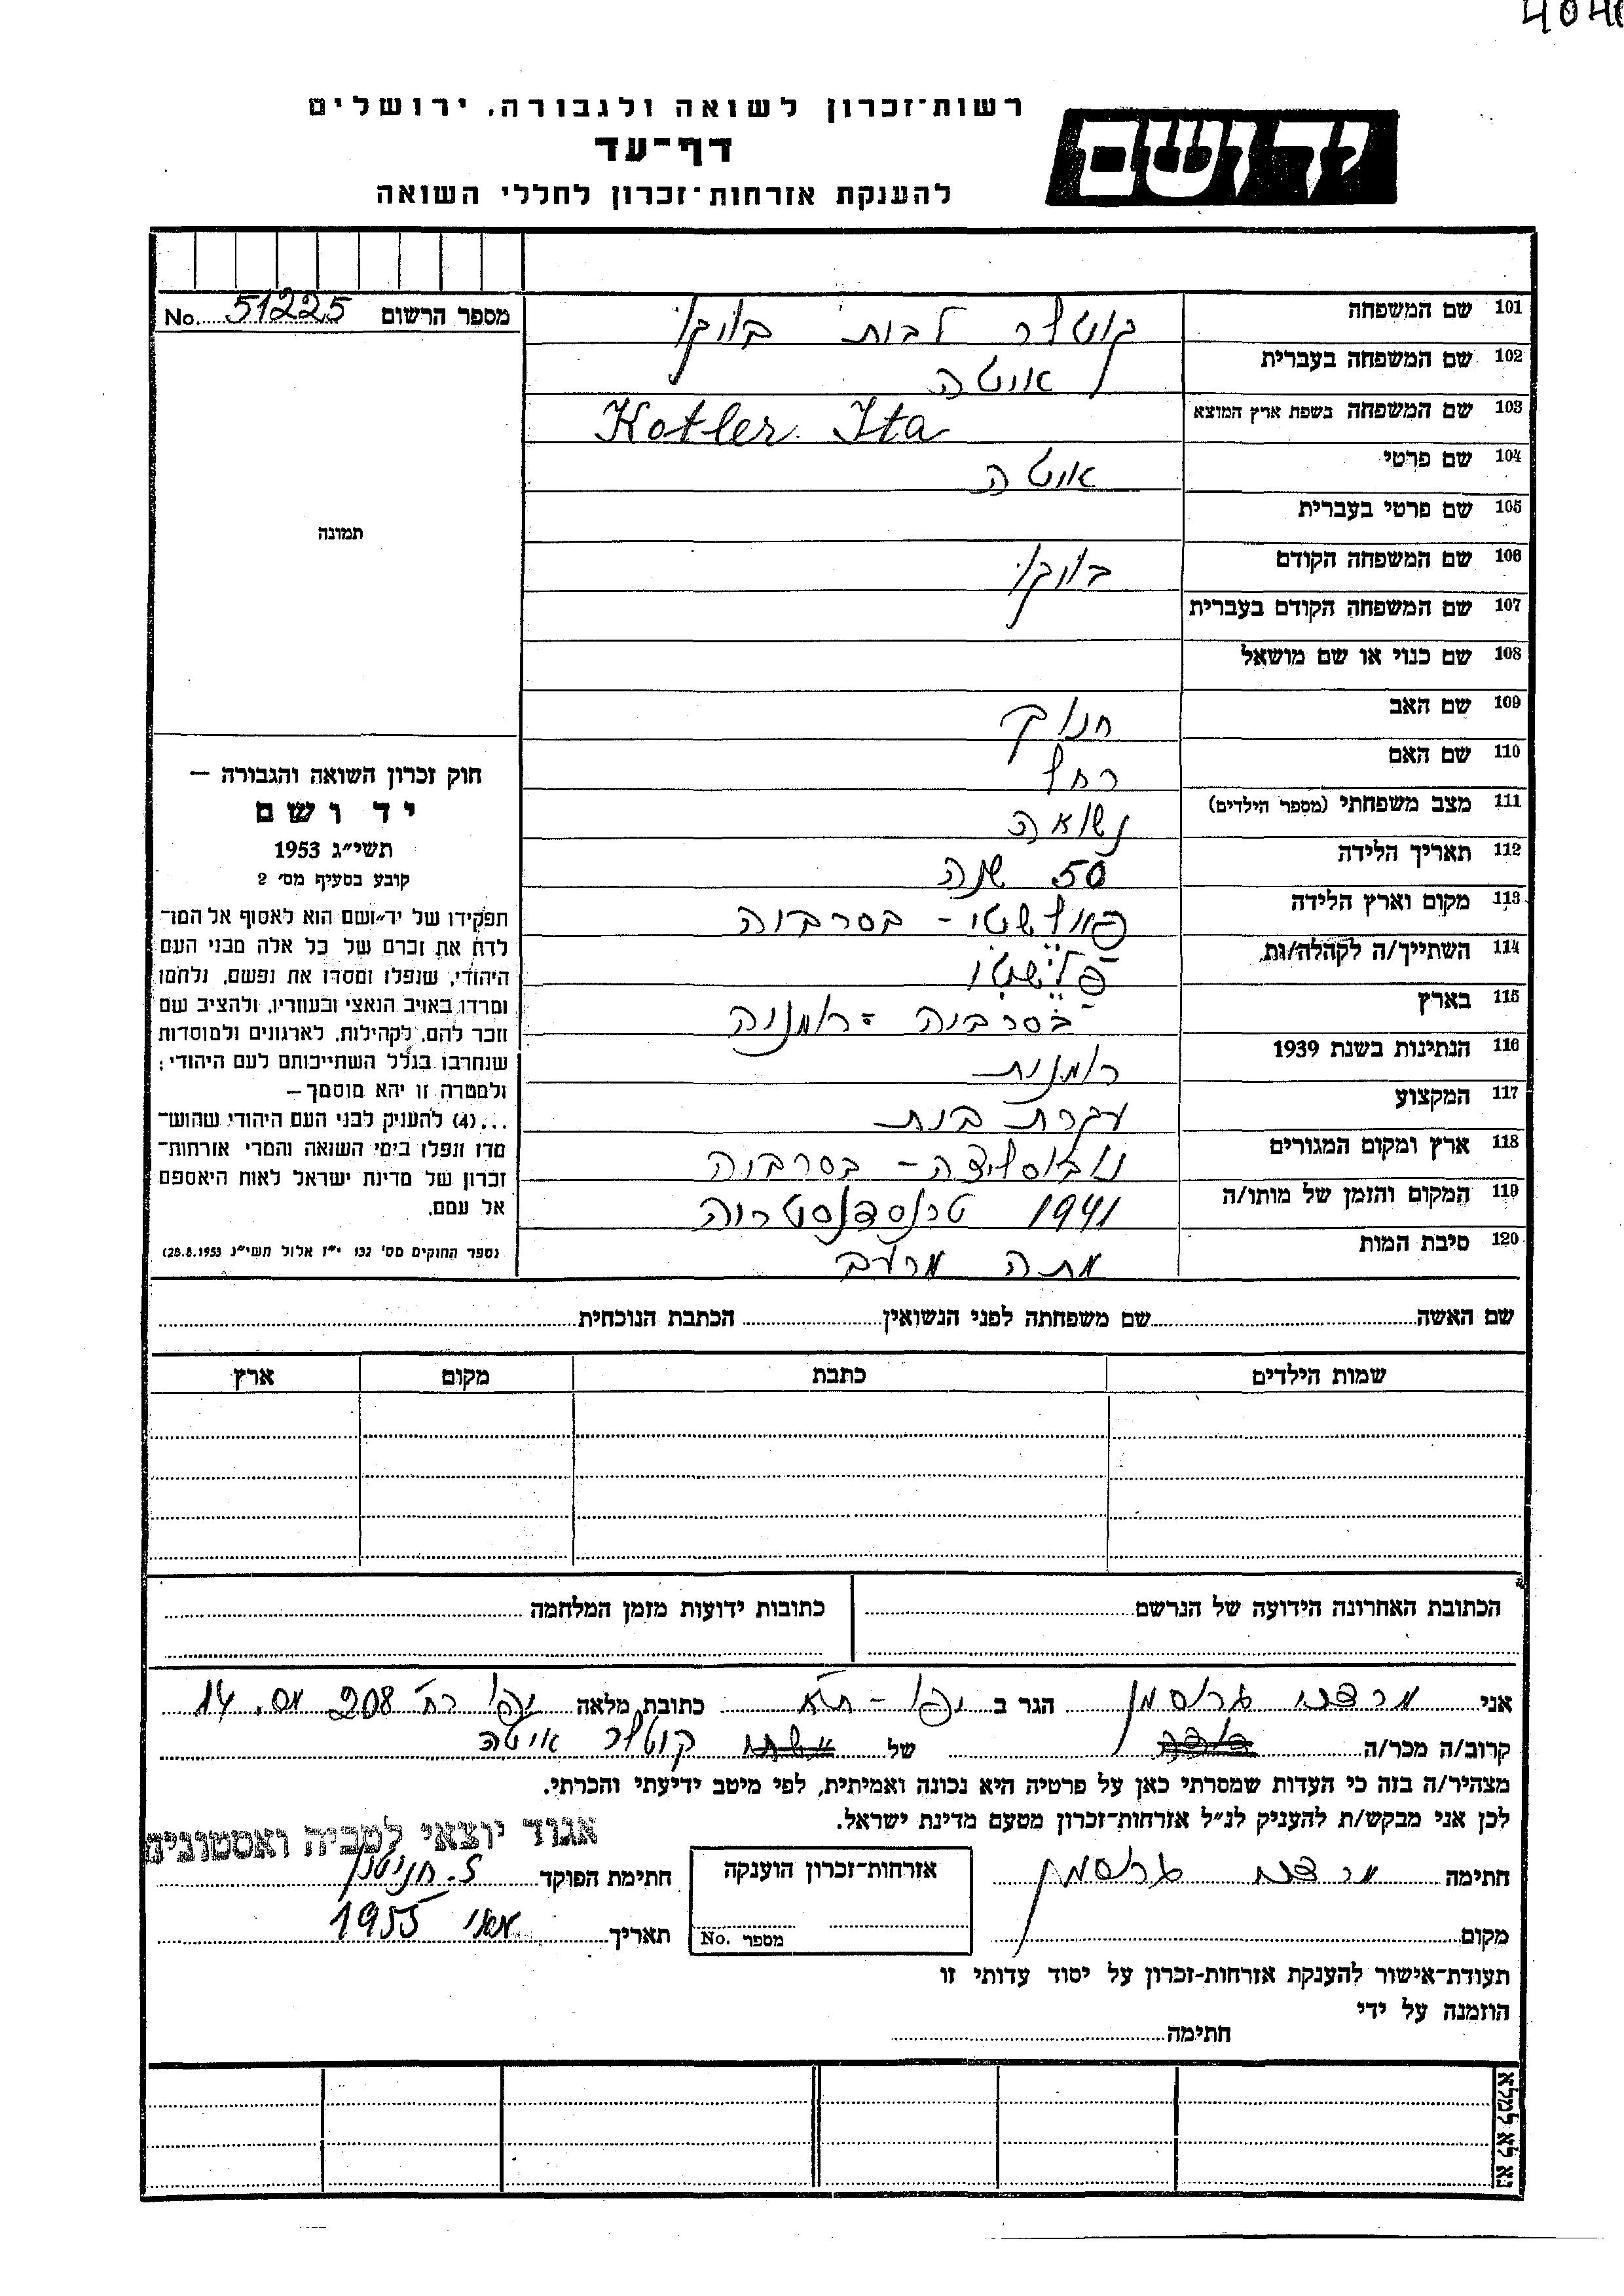 4040
רשות־זכרון לשואה ולגבורה, ירושלים
יד ושם
דף־עד
להענקת אזרחות־זכרון לחללי השואה
מספר הרשום 51225 No.
תמונה
חוק זכרון השואה והגבורה —
יד ושם
תשי״ג 1953
קובע בסעיף מס׳ 2
תפקידו של יד־ושם הוא לאסוף אל המו־
לדת את זכרם של כל אלה מבני העם
היהודי, שנפלו ומסרו את נפשם, נלחמו
ומרדו באויב הנאצי ובעוזריו, ולהציב שם
וזכר להם, לקהילות, לארגונים ולמוסדות
שנחרבו בגלל השתייכותם לעם היהודי;
ולמטרה זו יהא מוסמך—
...(4) להעניק לבני העם היהודי שהוש־
מדו ונפלו בימי השואה והמרי אזרחות־
זכרון של מדינת ישראל לאות היאספם
אל עמם.
(ספר החוקים מס׳ 132 י״ז אלול תשי״ג 28.8.1953)
101 שם המשפחה קוטלר לבית
102 שם המשפחה בעברית איטה
103 שם המשפחה בשפת ארץ המוצא Kotler Ita
104 שם פרטי איטה
105 שם פרטי בעברית
106 שם המשפחה הקודם
107 שם המשפחה הקודם בעברית
108 שם כנוי או שם מושאל
109 שם האב חנוך
110 שם האם רחל
111 מצב משפחתי (מספר הילדים) נשואה
112 תאריך הלידה 50 שנה
113 מקום וארץ הלידה פלשטי - בסרביה
114 השתייך/ה לקהלה/ות פלישטי
115 בארץ בסרביה - רומניה
116 הנתינות בשנת 1939 רומנית
117 המקצוע עקרת בית
118 ארץ ומקום המגורים נובוסליצה - בסרביה
119 המקום והזמן של מותו/ה 1941 טרנסדנסטריה
120 סיבת המות מתה מרעב
שם האשה שם משפחתה לפני הנשואין הכתבת הנוכחית
שמות הילדים כתבת מקום ארץ
הכתובת האחרונה הידועה של הנרשם כתובות ידועות מזמן המלחמה
אני גרוסמן הגר ב יפו - ת״א כתובת מלאה יפו רח׳ 208 מס. 14
קרוב/ה מכר/ה של קוטלר איטה
מצהיר/ה בזה כי העדות שמסרתי כאן על פרטיה היא נכונה ואמיתית, לפי מיטב ידיעתי והכרתי.
לכן אני מבקש/ת להעניק לנ״ל אזרחות־זכרון מטעם מדינת ישראל.
אגוד יוצאי לטביה ואסטוניה
חתימה גרוסמן אזרחות־זכרון הוענקה חתימת הפוקד
מקום מספר No. תאריך מאי 1955
תעודת־אישור להענקת אזרחות־זכרון על יסוד עדותי זו
הוזמנה על ידי
חתימה
נא לא למלא